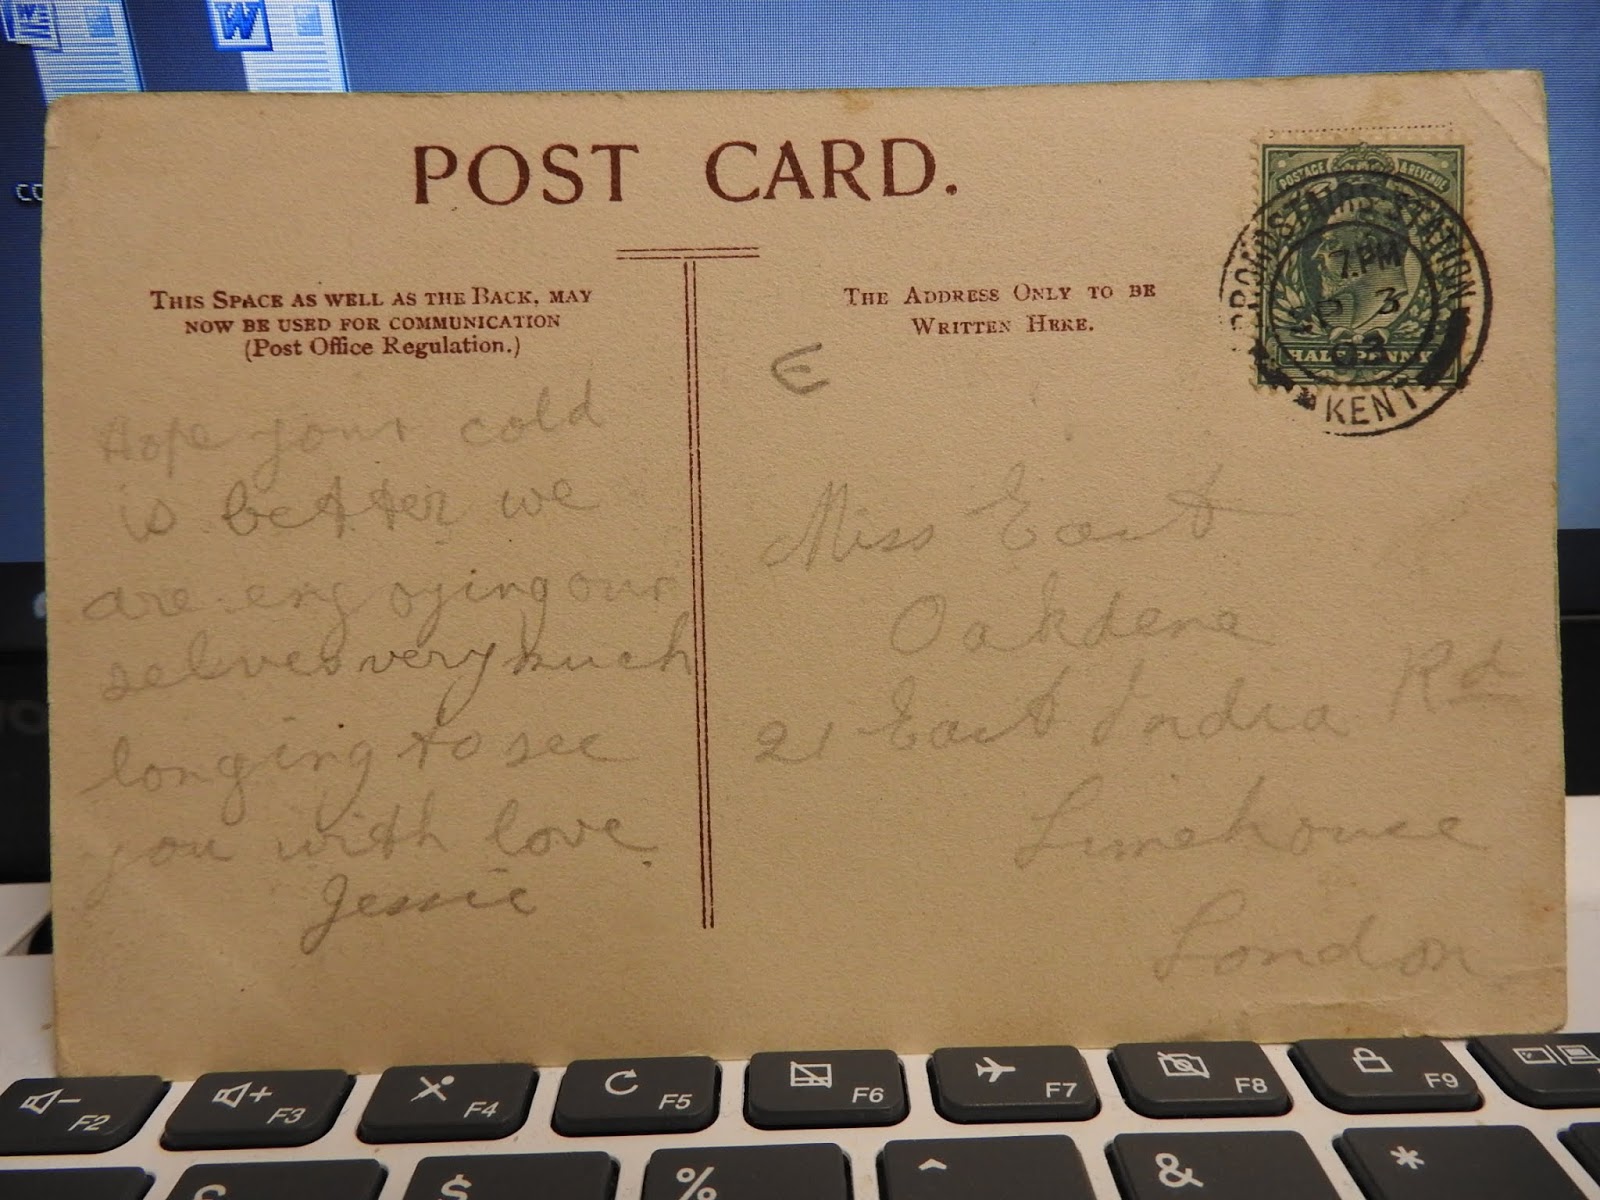 W
POST CARD.
THIS SPACE AS WELL AS THE BACK, MAY
NOW BE USED FOR COMMUNICATION
(Post Office Regulation.)
THE ADDRESS ONLY TO BE
WRITTEN HERE.
POSTAGE & REVENUE
HALF PENNY
BROADSTAIRS STATION
7.PM
SP 3
KENT
E
Hope your cold
is better we
are enj oying our
selves very much
longing to see
you with love
Jessie
Miss East
Oakdene
21 East India Rd
Limehouse
London
F2
F3
F4
F5
F6
F7
F8
F9
£
$
%
^
&
*